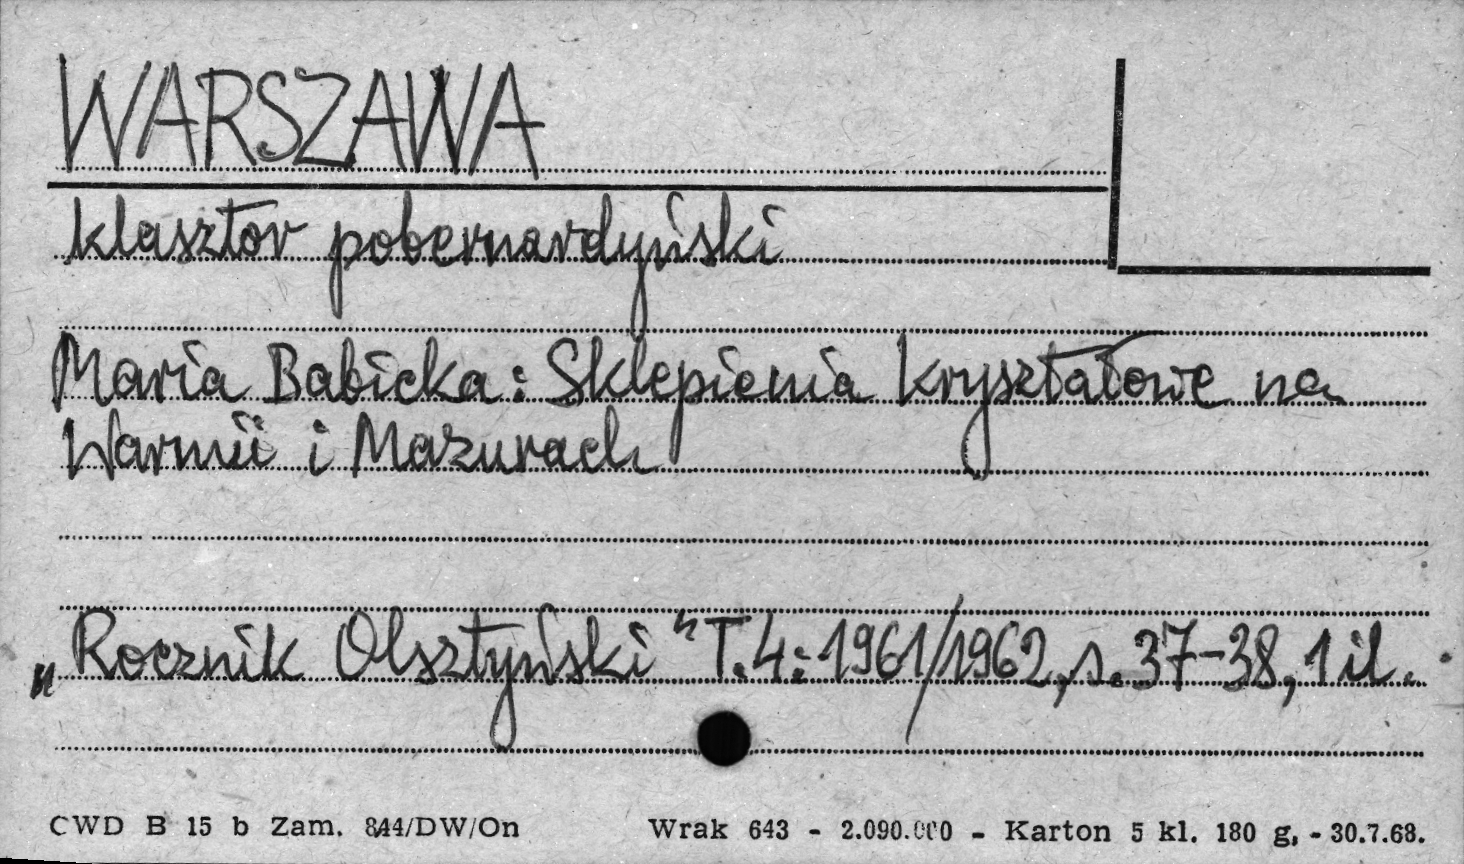 WARSZAWA
klasztor pobernardyński
Maria Babicka: Sklepienia kryształowe na
Warmii i Mazurach
„Rocznik Olsztyński" T.4: 1961/1962, s. 37-38, 1 il.
CWD B 15 b Zam. 844/DW/On Wrak 643 - 2.090.000 - Karton 5 kl. 180 g, - 30.7.68.